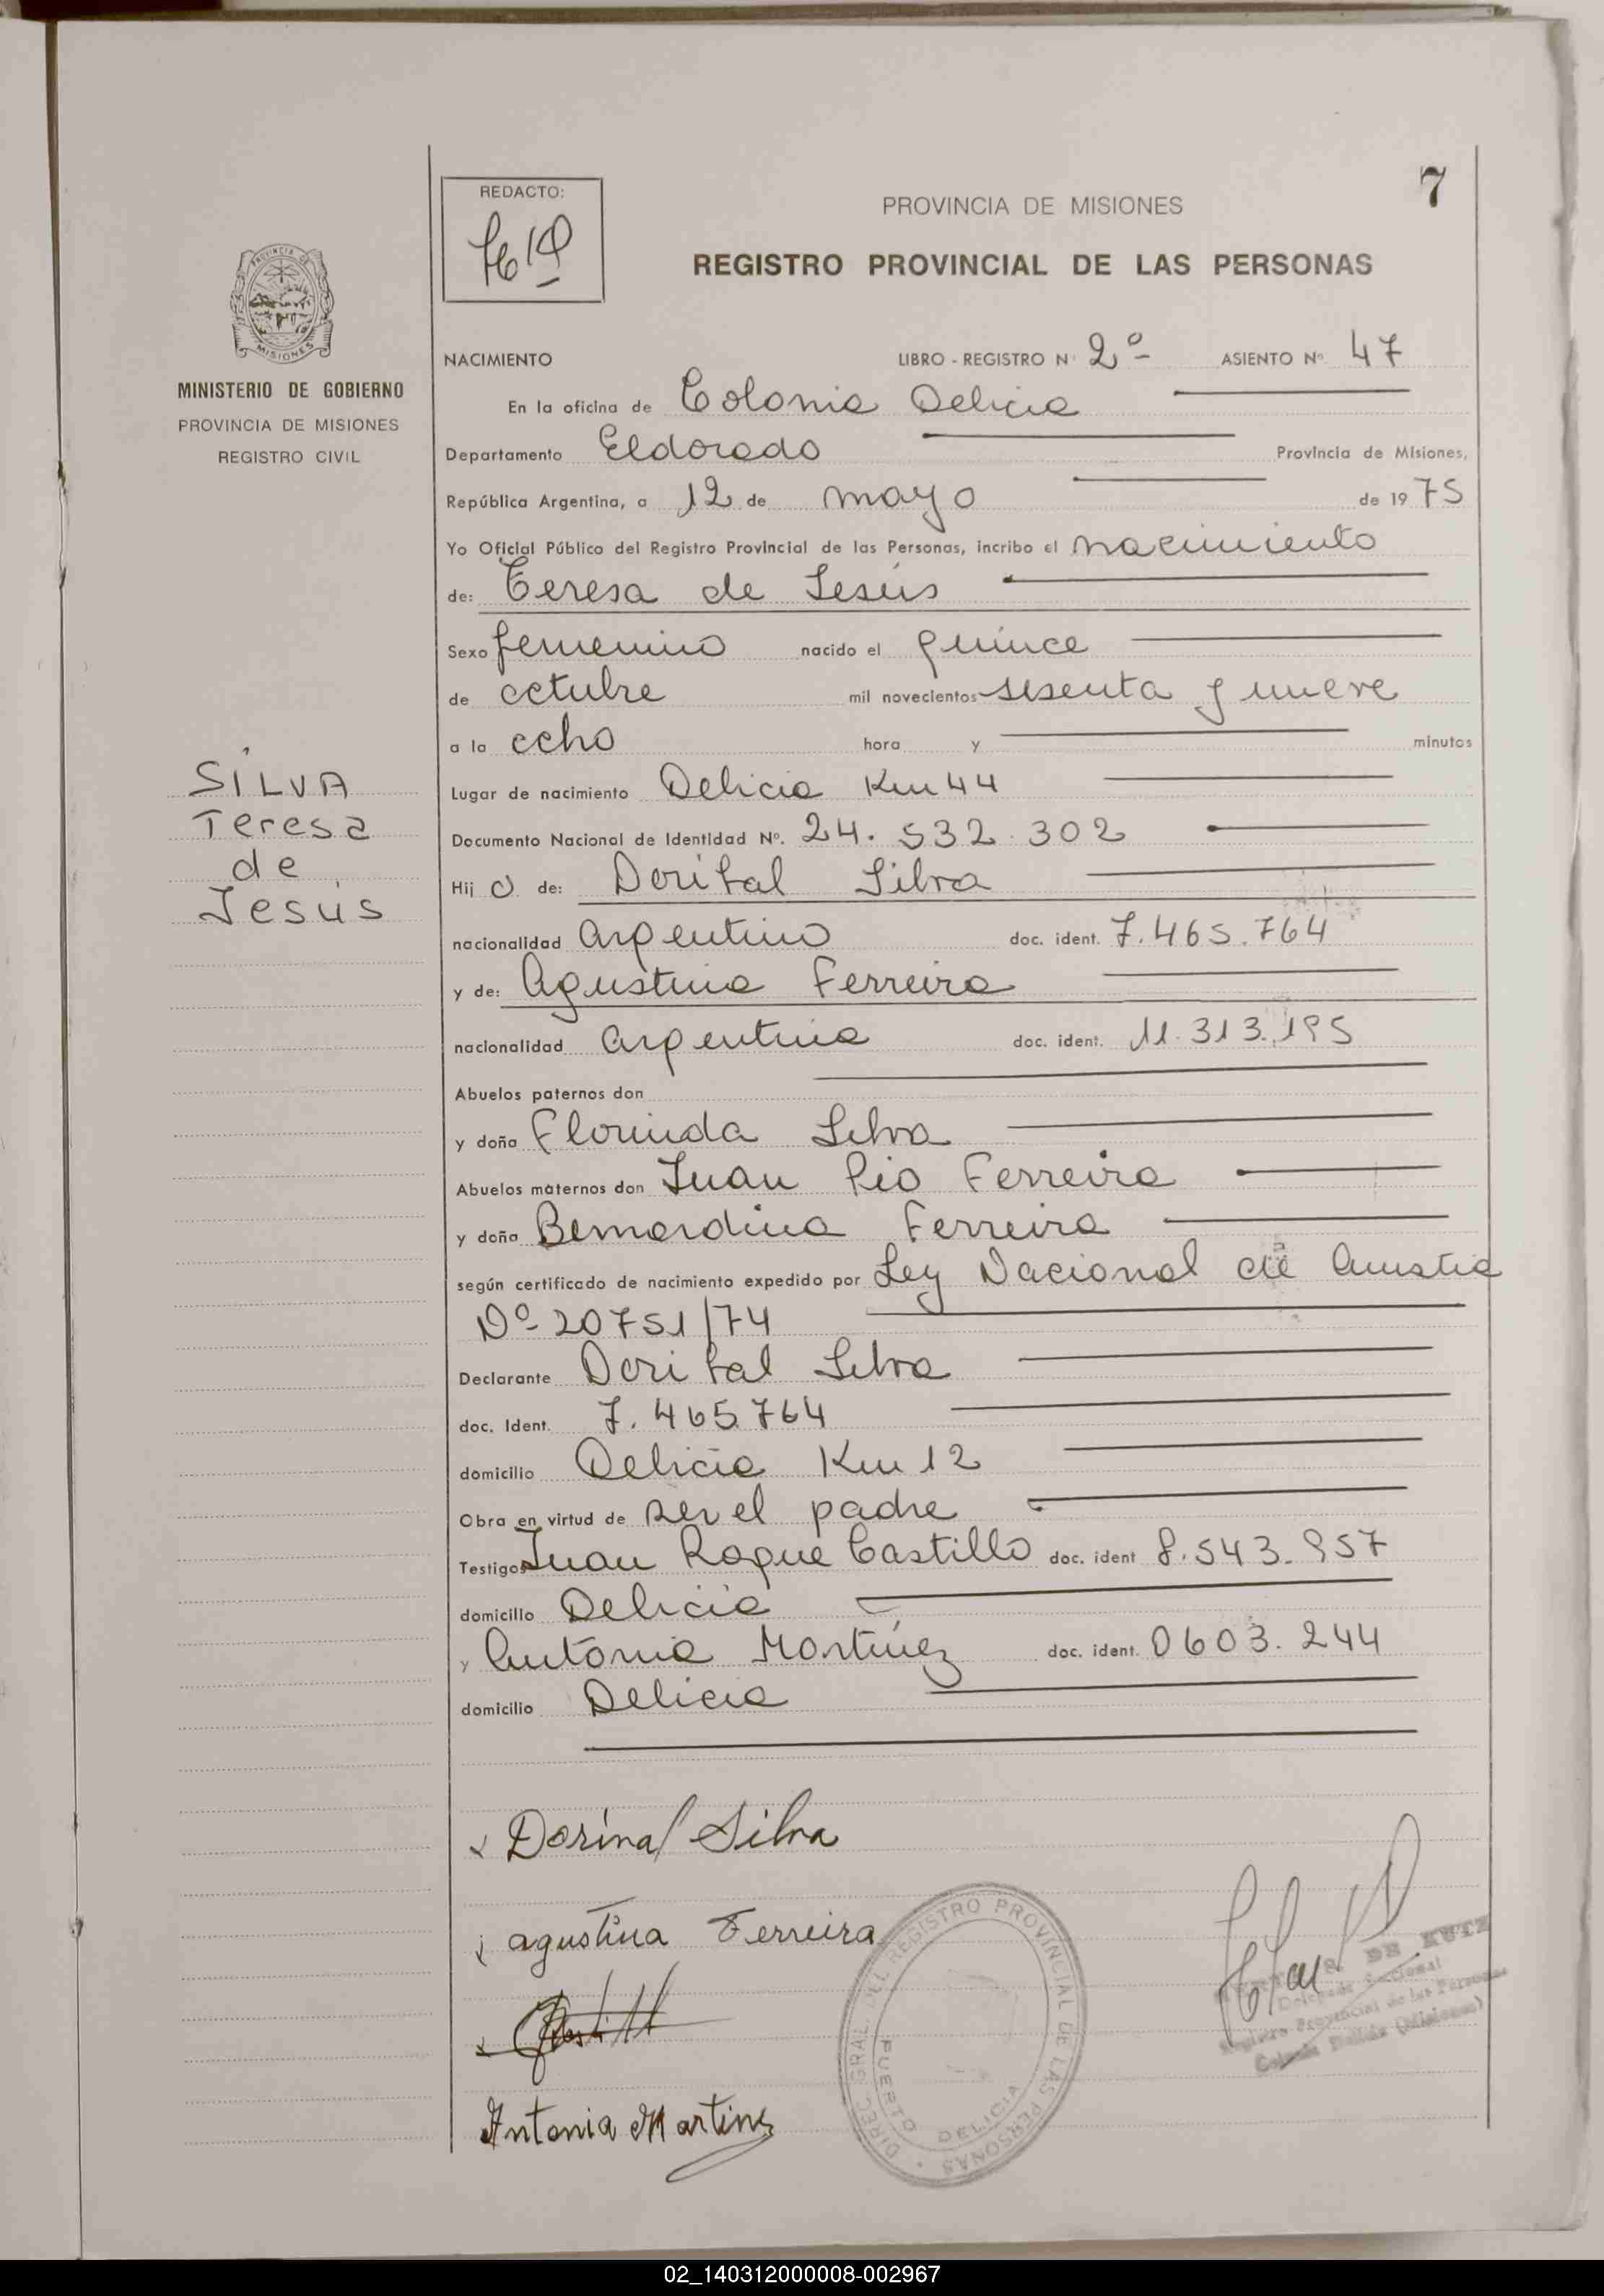 7
REDACTO:
PROVINCIA DE MISIONES
REGISTRO PROVINCIAL DE LAS PERSONAS
MISIONES
MINISTERIO DE GOBIERNO
PROVINCIA DE MISIONES
REGISTRO CIVIL
SILVA
Teresa
de
Jesús
NACIMIENTO LIBRO - REGISTRO Nº 2º ASIENTO Nº 47
En la oficina de Colonia Delicia
Departamento Eldorado Provincia de Misiones,
República Argentina, a 12 de mayo de 1975
Yo Oficial Público del Registro Provincial de las Personas, incribo el nacimiento
de: Teresa de Jesús
Sexo femenino nacido el quince
de octubre mil novecientos sesenta y nueve
a la ocho hora y minutos
Lugar de nacimiento Delicia Km 44
Documento Nacional de Identidad Nº. 24.532.302
Hij o de: Silva
nacionalidad Argentino doc. ident. 7.465.764
y de: Agustina Ferreira
nacionalidad Argentina doc. ident. 11.313.195
Abuelos paternos don
y doña Florinda Silva
Abuelos maternos don Juan Pio Ferreira
y doña Bernardina Ferreira
según certificado de nacimiento expedido por Ley Nacional de Amistia
Nº 20751/74
Declarante Silva
doc. Ident. 7.465.764
domicilio Delicia Km 12
Obra en virtud de ser el padre
Testigos Juan Roque Castillo doc. ident 8.543.957
domicilio Delicia
y Antonia Martínez doc. ident. 0603.244
domicilio Delicia
Dorinal Silva
agustina Ferreira
Antonia Martinez
DIREC. GRAL. DEL REGISTRO PROVINCIAL DE LAS PERSONAS
PUERTO DELICIA
DE KUTZ
Registro Provincial de las Personas
Colonia Delicia (Misiones)
02_140312000008-002967